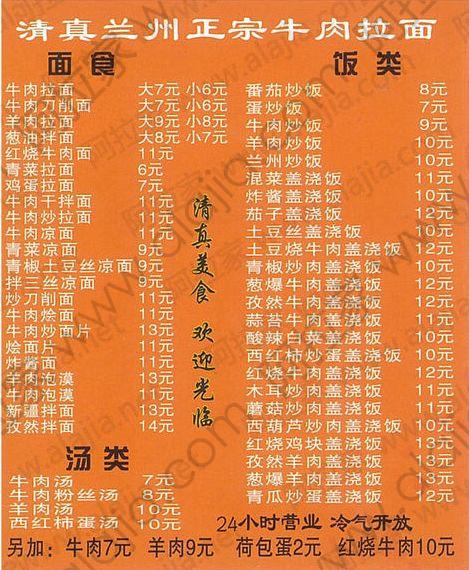 清真兰州正宗牛肉拉面
面食
牛肉拉面 大7元 小6元
牛肉刀削面 大7元 小6元
羊肉拉面 大9元 小8元
葱油拌面 大8元 小7元
红烧牛肉面 11元
青菜拉面 6元
鸡蛋拉面 7元
牛肉干拌面 11元
牛肉炒拉面 11元
牛肉凉面 11元
青菜凉面 9元
青椒土豆丝凉面 9元
拌三丝凉面 9元
炒刀削面 11元
牛肉烩面 11元
牛肉炒面片 13元
烩面片 11元
炸酱面 11元
羊肉泡漠 13元
牛肉泡漠 11元
新疆拌面 13元
孜然拌面 14元
汤类
牛肉汤 7元
牛肉粉丝汤 8元
羊肉汤 10元
西红柿蛋汤 10元
清真美食 欢迎光临
饭类
番茄炒饭 8元
蛋炒饭 7元
牛肉炒饭 9元
羊肉炒饭 10元
兰州炒饭 10元
混菜盖浇饭 11元
炸酱盖浇饭 10元
茄子盖浇饭 12元
土豆丝盖浇饭 10元
土豆烧牛肉盖浇饭 12元
青椒炒肉盖浇饭 12元
葱爆牛肉盖浇饭 12元
孜然牛肉盖浇饭 12元
蒜苔牛肉盖浇饭 11元
酸辣白菜盖浇饭 10元
西红柿炒蛋盖浇饭 10元
红烧牛肉盖浇饭 12元
木耳炒肉盖浇饭 11元
蘑菇炒肉盖浇饭 11元
西葫芦炒肉盖浇饭 10元
红烧鸡块盖浇饭 13元
孜然羊肉盖浇饭 13元
葱爆羊肉盖浇饭 13元
青瓜炒蛋盖浇饭 12元
24小时营业 冷气开放
另加：牛肉7元 羊肉9元 荷包蛋2元 红烧牛肉10元